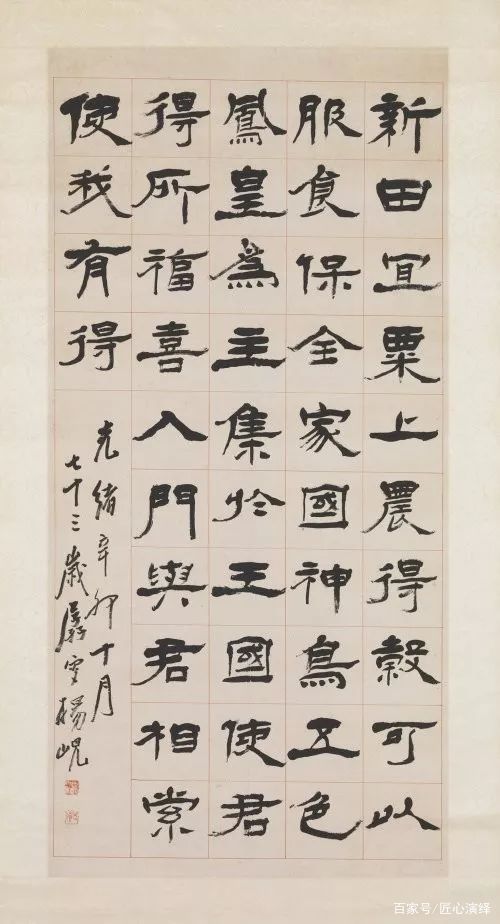 新田宜粟上農得穀可以
服食保全家國神鳥五色
鳳皇為主集於王國使君
得所福喜入門與君相索
使我有得
光緒辛卯十月
七十三歲楊峴
百家号/匠心演绎